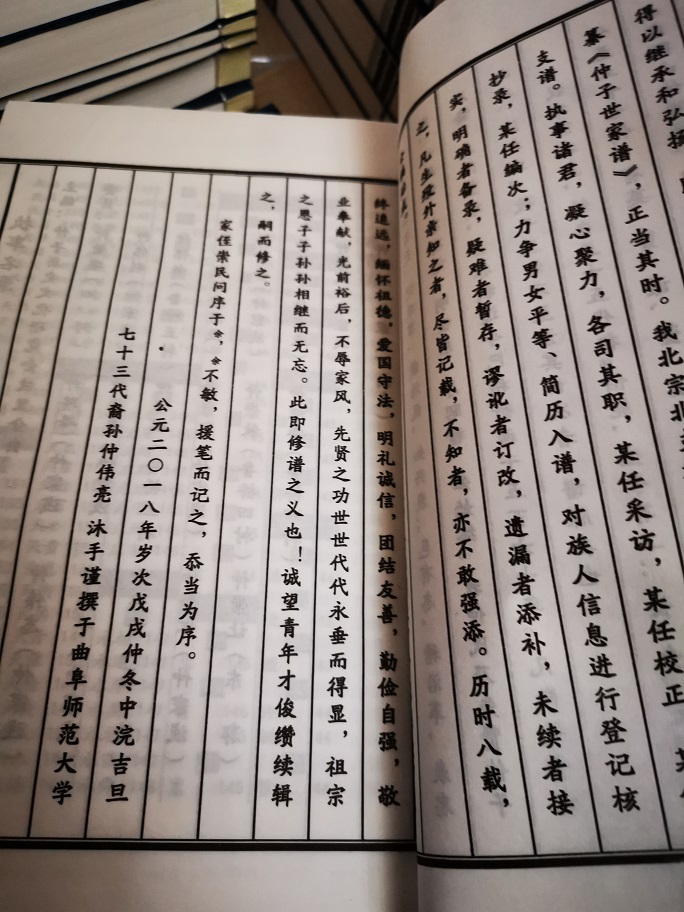 得以继承和弘扬
纂《仲子世家谱》，正当其时。我北宗北
支谱。执事诸君，凝心聚力，各司其职，某任采访，某任校正，某
抄录，某任编次；力争男女平等、简历入谱，对族人信息进行登记核
实，明确者备录，疑难者暂存，谬讹者订改，遗漏者添补，未续者接
之，凡生殁外亲知之者，尽皆记载，不知者，亦不敢强添。历时八载，
终追远，缅怀祖德，爱国守法，明礼诚信，团结友善，勤俭自强，敬
业奉献，光前裕后，不辱家风，先贤之功世世代代永垂而得显，祖宗
之恩子子孙孙相继而无忘。此即修谱之义也！诚望青年才俊缵续辑
之，嗣而修之。
家侄崇民问序于余，余不敏，援笔而记之，忝当为序。
公元二〇一八年岁次戊戌仲冬中浣吉旦
七十三代裔孙仲伟亮 沐手谨撰于曲阜师范大学